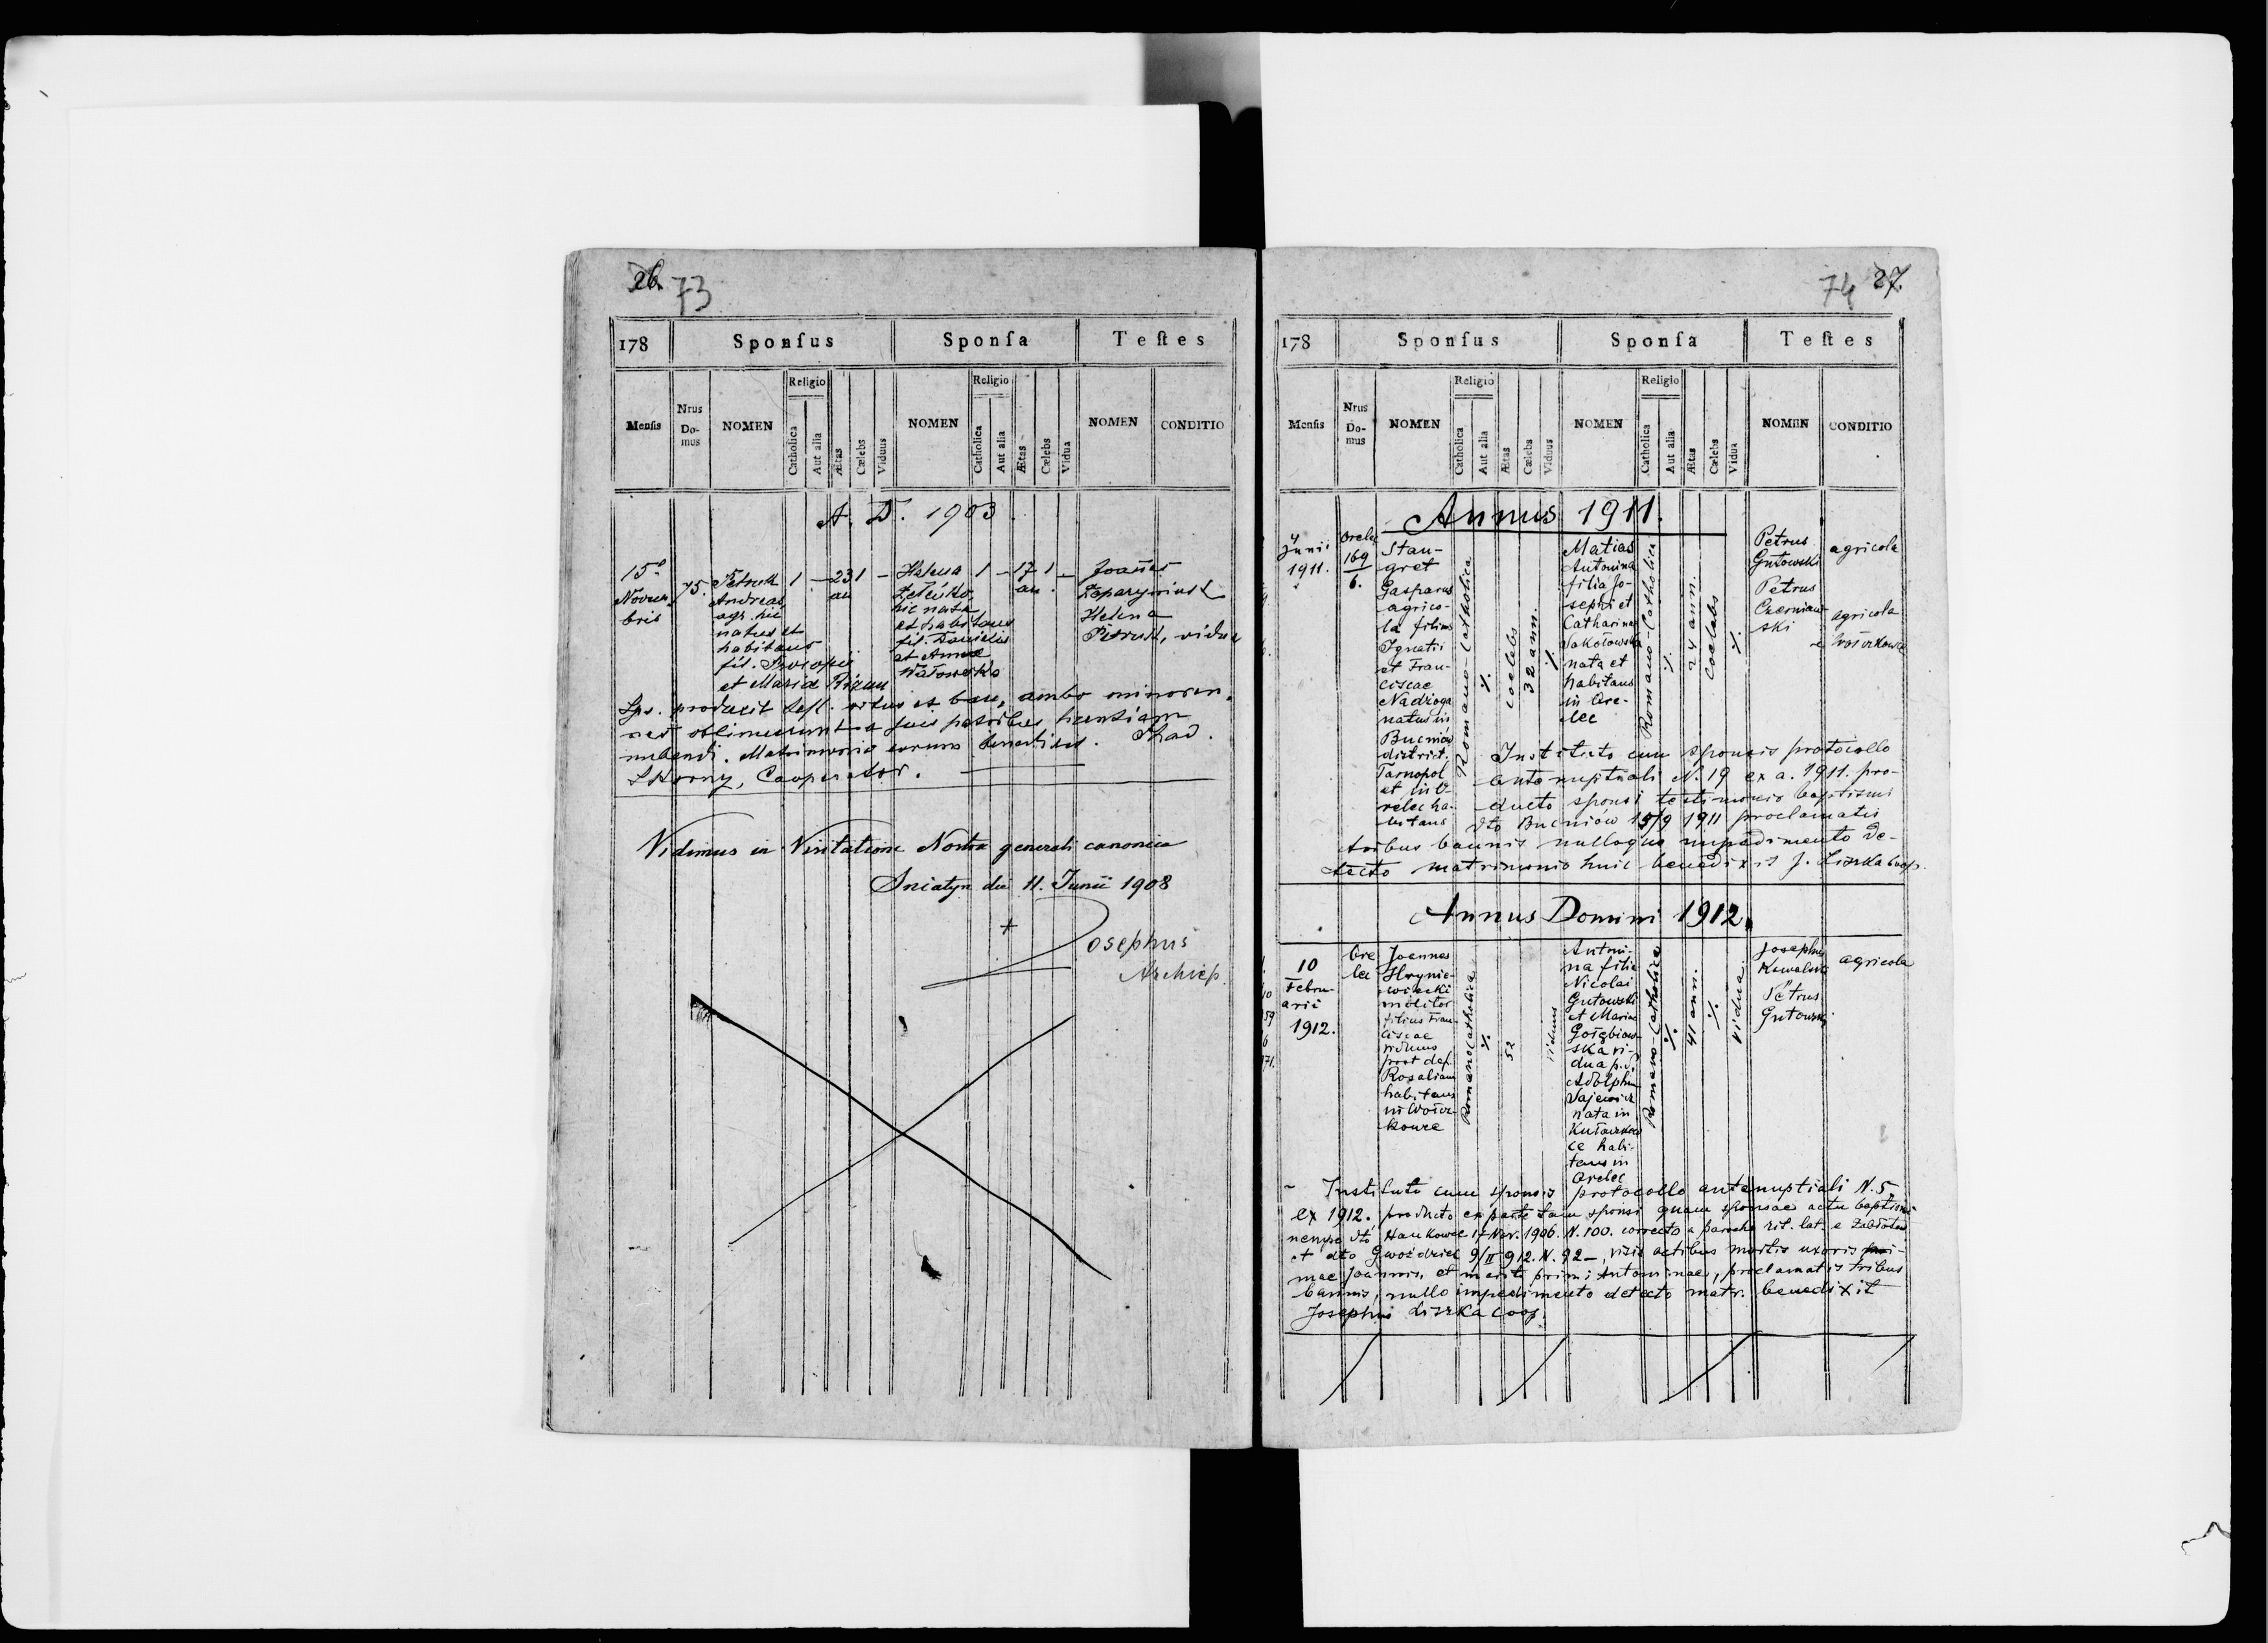 26. 73
178 Sponſus Sponſa Teſtes
Menſis Nrus Do-mus NOMEN Religio Catholica Aut alia Ætas Cælebs Viduus NOMEN Religio Catholica Aut alia Ætas Cælebs Vidua NOMEN CONDITIO
A. D. 1903
15a
Novem-
bris
75.
Petruk
Andreas
agr. hic
natus et
habitans
fil. Procopii
et Maria
1 — 23 1 —
an
Helena
hic nata
et habitans
fil. Danielis
et Annae
1 — 17 1 —
an.
Joannes
Helena
Petruk, vidua
Sps. producit test. ortus et bapt. ambo minoren-
nes obtinuerunt a suis patribus licentiam
nubendi. Matrimonio eorum benedixit. Thad.
Skorny, Cooperator.
Vidimus in Visitatione Nostra generali canonica
Sniatyn die 11. Junii 1908
+
Josephus
Archiep.
74 27.
178 Sponſus Sponſa Teſtes
Menſis Nrus Do-mus NOMEN Religio Catholica Aut alia Ætas Cælebs Viduus NOMEN Religio Catholica Aut alia Ætas Cælebs Vidua NOMEN CONDITIO
Annus 1911.
4
Junii
1911.
Orelec
169
6.
Stan-
gret
Gasparus
agrico-
la filius
Ignatii
et Fran-
ciscae
Nadzoga
natus in
Bucniów
district.
Tarnopol
et in O-
relec ha-
bitans
Romano-Catholica
%
coelebs
32 ann.
%
Matias
Antonina
filia Jo-
sephi et
Catharinae
Sakołowska
nata et
habitans
in Ore-
lec
Romano-Catholica
%
24 ann.
Coelebs
%
Petrus
Gutowski
Petrus
Czerniaw-
ski
agricola
agricola
Instituto cum sponsis protocollo
antenuptuali N. 19 ex a. 1911. pro-
ducto sponsi testimonio baptismi
dto Bucniow 15/9 1911 proclamatis
tribus bannis nulloque impedimento de-
tecto matrimonio huic benedixit J. Liszka coop.
Annus Domini 1912.
10
Febru-
arii
1912.
Ore
lec
Joannes
Hrynie-
wiecki
molitor
filius Fran-
ciscae
viduus
post def.
Rosaliam
habitans
in Wołcz-
kowce
Romano Catholica
%
52
viduus
Antoni-
na filia
Nicolai
Gutowski
et Mariae
Gołębiow-
ska vi-
dua p. d.
Adolphum
Sajewicz
nata in
ce habi-
tans in
Orelec
Romano-Catholica
%
41 ann.
%
vidua
Josephus
Kowalski
Petrus
Gutowski
agricola
Instituto cum sponsis protocollo antenuptiali N. 5
ex 1912. producto ex parte tam sponsi quam sponsae actu baptismi
nempe dto Hankowce 17 Nov. 1906. N. 100. correcto a parocho rit. lat. e Zabłotow
et dto Gwoździec 9/II 912. N. 92 —, visis actibus mortis uxoris pri-
mae Joannis, et mariti primi Antoninae, proclamatis tribus
bannis, nullo impedimento detecto matr. benedixit
Josephus Liszka coop.